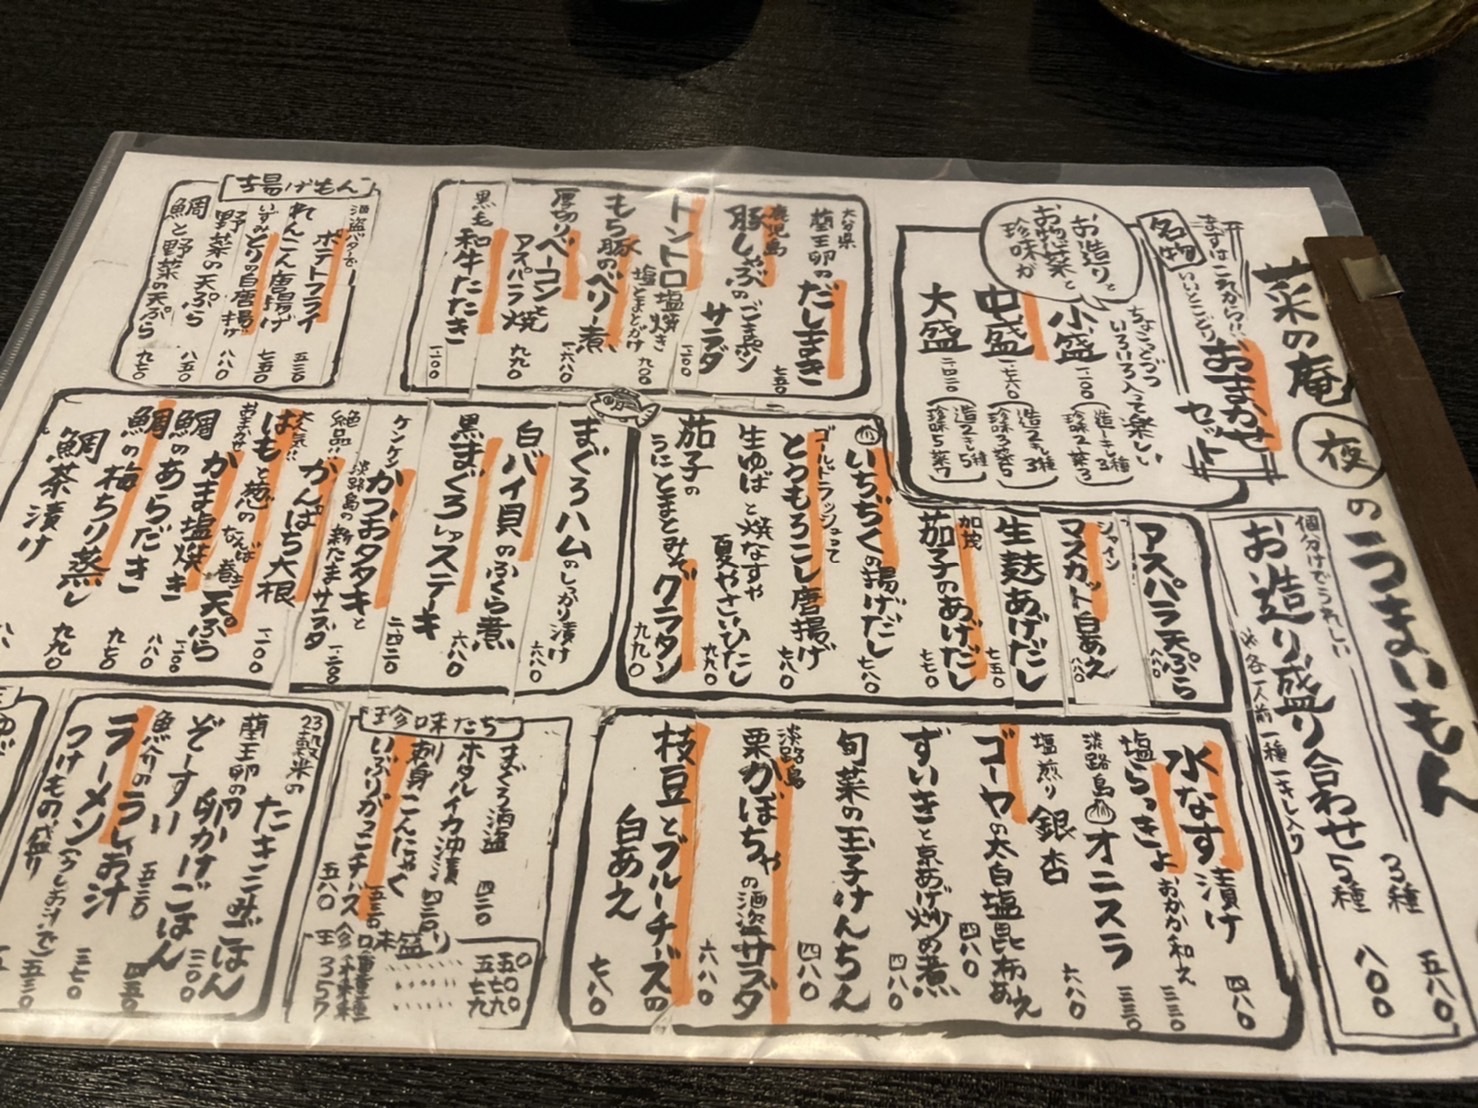 菜の庵 夜 のうまいもん
まずはこれから!!
名物
いいとこどり
おまかせセット
お造りと
お惣菜と
珍味が
ちょこっとづつ
いろいろ入って楽しい
小盛 一一〇〇
造り1きれ3種
珍味2菜3
中盛 一七六〇
造り2きれ3種
珍味3菜5
大盛 二〇二〇
造り2きれ5種
珍味5菜7
個分けでうれしい
お造り盛り合わせ
※各一人前 一種一きれ入り
3種 五八〇
5種 八〇〇
大分県
蘭王卵のだし巻き 七五〇
鹿児島
豚しゃぶのごまポンサラダ 一一〇〇
トントロ塩焼き 九〇〇
もち豚のベリー煮
塩とまとがけ
一六八〇
厚切りベーコンと
アスパラ焼 九九〇
黒毛和牛たたき 一一〇〇
揚げもん
酒盗バターで
ポテトフライ 五三〇
れんこん唐揚げ 七五〇
いずみどりの白唐揚げ 八八〇
野菜の天ぷら 八五〇
鯛と野菜の天ぷら 九五〇
アスパラ天ぷら 八八〇
シャインマスカット白あえ 八八〇
生麩あげだし 七五〇
加茂茄子のあげだし 七七〇
いちぢくの揚げだし 七八〇
ゴールドラッシュって
とうもろこし唐揚げ 七八〇
生ゆばと焼なすや
夏やさいひたし 九八〇
茄子の
うにとまとみそグラタン 九九〇
まぐろハムのしょうが漬け 六八〇
白バイ貝のふくら煮 六八〇
黒まぐろレアステーキ
ケンケン
かつおタタキと
淡路島の新たまサラダ
絶品!!
がんぱち大根
人気!!
はもと葱のなんば巻き天ぷら
おまかせ
鯛かま塩焼き
鯛のあらだき
鯛の梅ちり蒸し
鯛茶漬け
水なす漬け 四八〇
塩らっきょ おかか和え 三三〇
淡路島 オニスラ
塩煎り銀杏 六八〇
ゴーヤの太白塩昆布あえ 四八〇
ずいきと京あげ炒め煮 四八〇
旬菜の玉子けんちん 四八〇
淡路島
栗かぼちゃの酒盗サラダ 六八〇
枝豆とブルーチーズの
白あえ 七八〇
珍味たち
まぐろ酒盗 四三〇
ホタルイカ沖漬 四三〇
刺身こんにゃく 五三〇
いぶりがっこチーズ 五八〇
珍味盛り
3種
5種
7種
23穀米の
たきこみごはん
蘭王卵の
卵かけごはん 三〇〇
ぞーすい 五三〇
魚介りのラーメン
つけもの盛り 三七〇